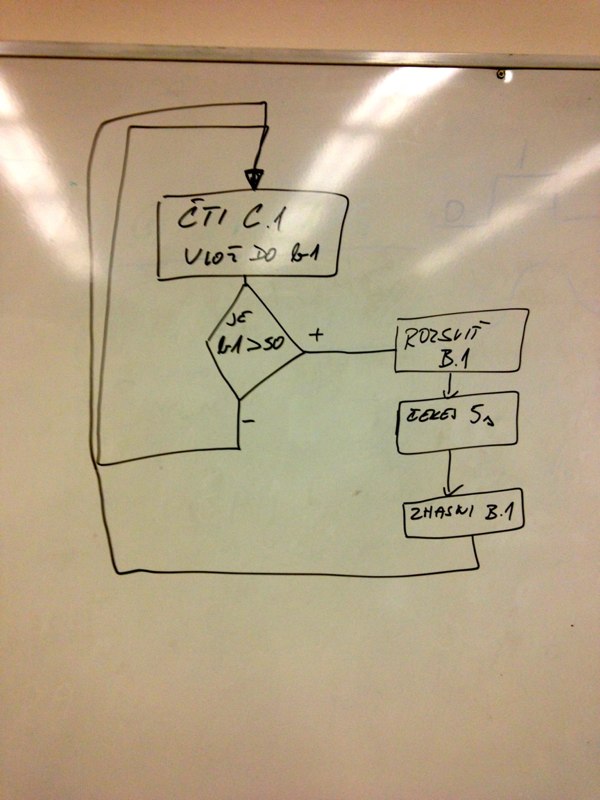 ČTI C.1
VLOŽ DO b1
JE
b1>50
+
-
ROZSVIŤ
B.1
ČEKEJ 5s
ZHASNI B.1